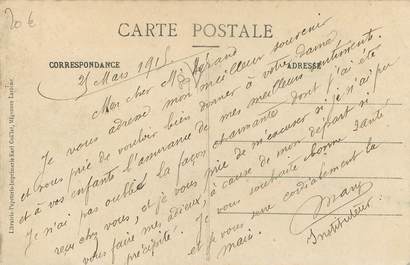 20 €
CARTE POSTALE
CORRESPONDANCE
ADRESSE
25 Mars 1915
Mon cher Mr
Je vous adresse mon meilleur souvenir
et vous prie de vouloir bien donner à votre dame
et à vos enfants l'assurance de mes meilleurs sentiments.
Je n'ai pas oublié la façon charmante dont j'ai été
reçu chez vous, et je vous prie de m'excuser si je n'ai pu
vous faire mes adieux, à cause de mon départ si
précipité. Je vous souhaite bonne santé
et je vous serre cordialement la
main.
Mary
Instituteur.
Librairie-Papeterie-Imprimerie Karl Guillot,